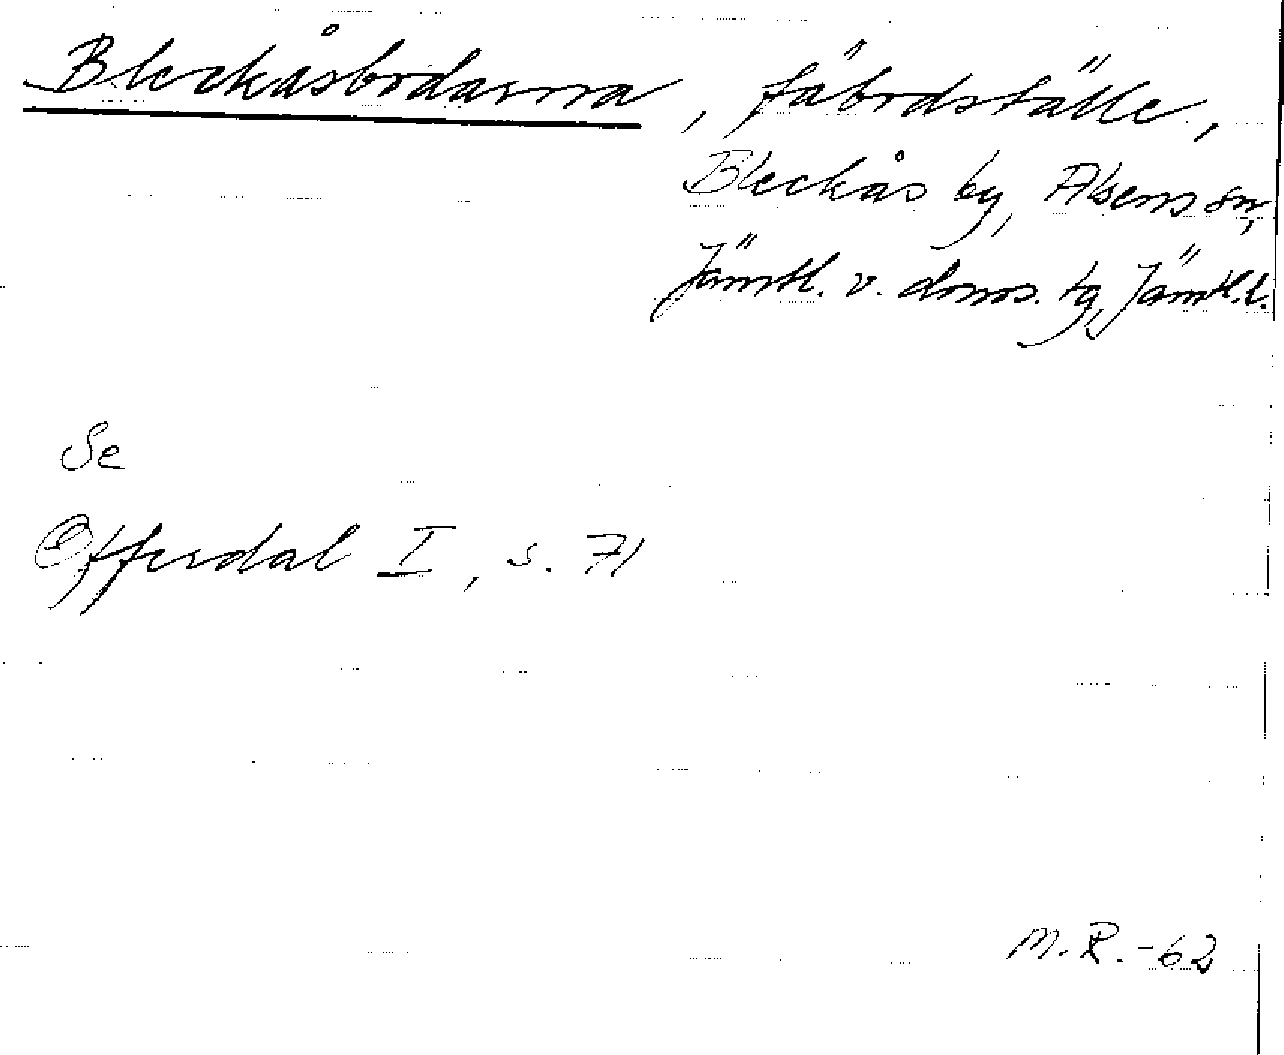 Bleckåsbodarna, fäbodställe,
Bleckås by, Alsens sn,
Jämtl. v. doms. tg, Jämtl. l.
Se
Offerdal I, s. 71
M.R.-62